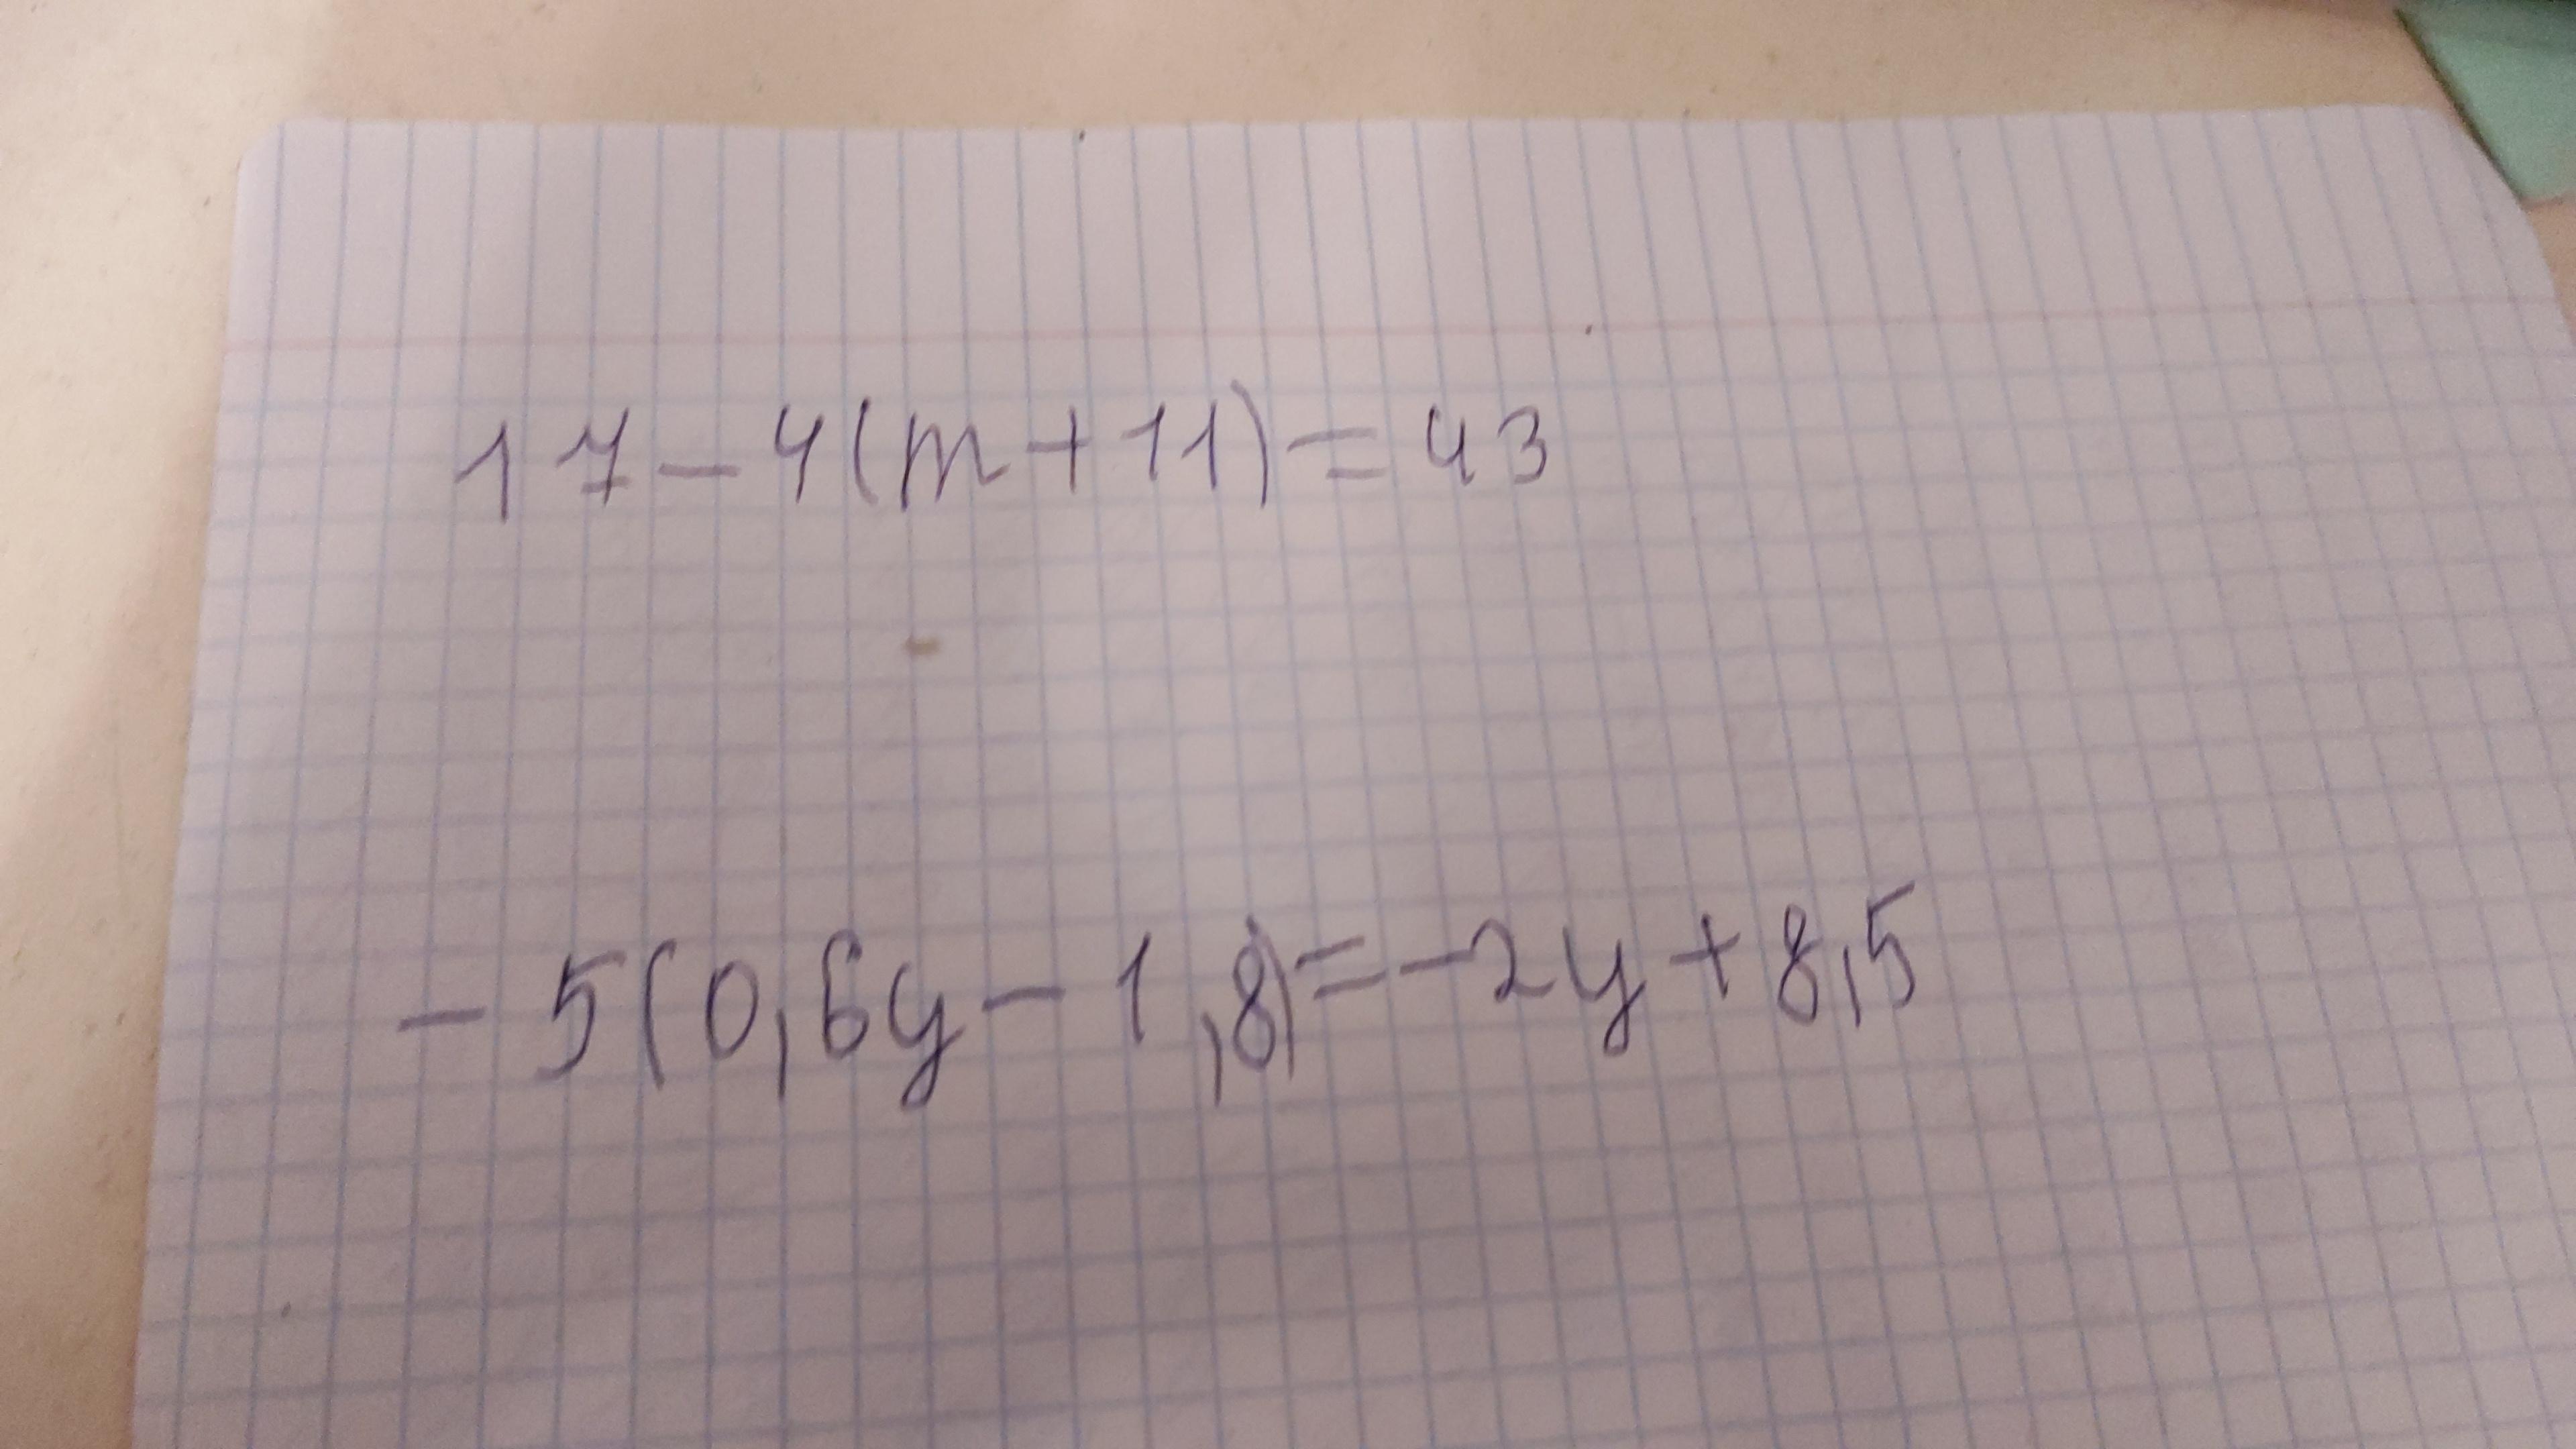 17-4(m+11)=43
-5(0,6y-1,8)=-2y+8,5